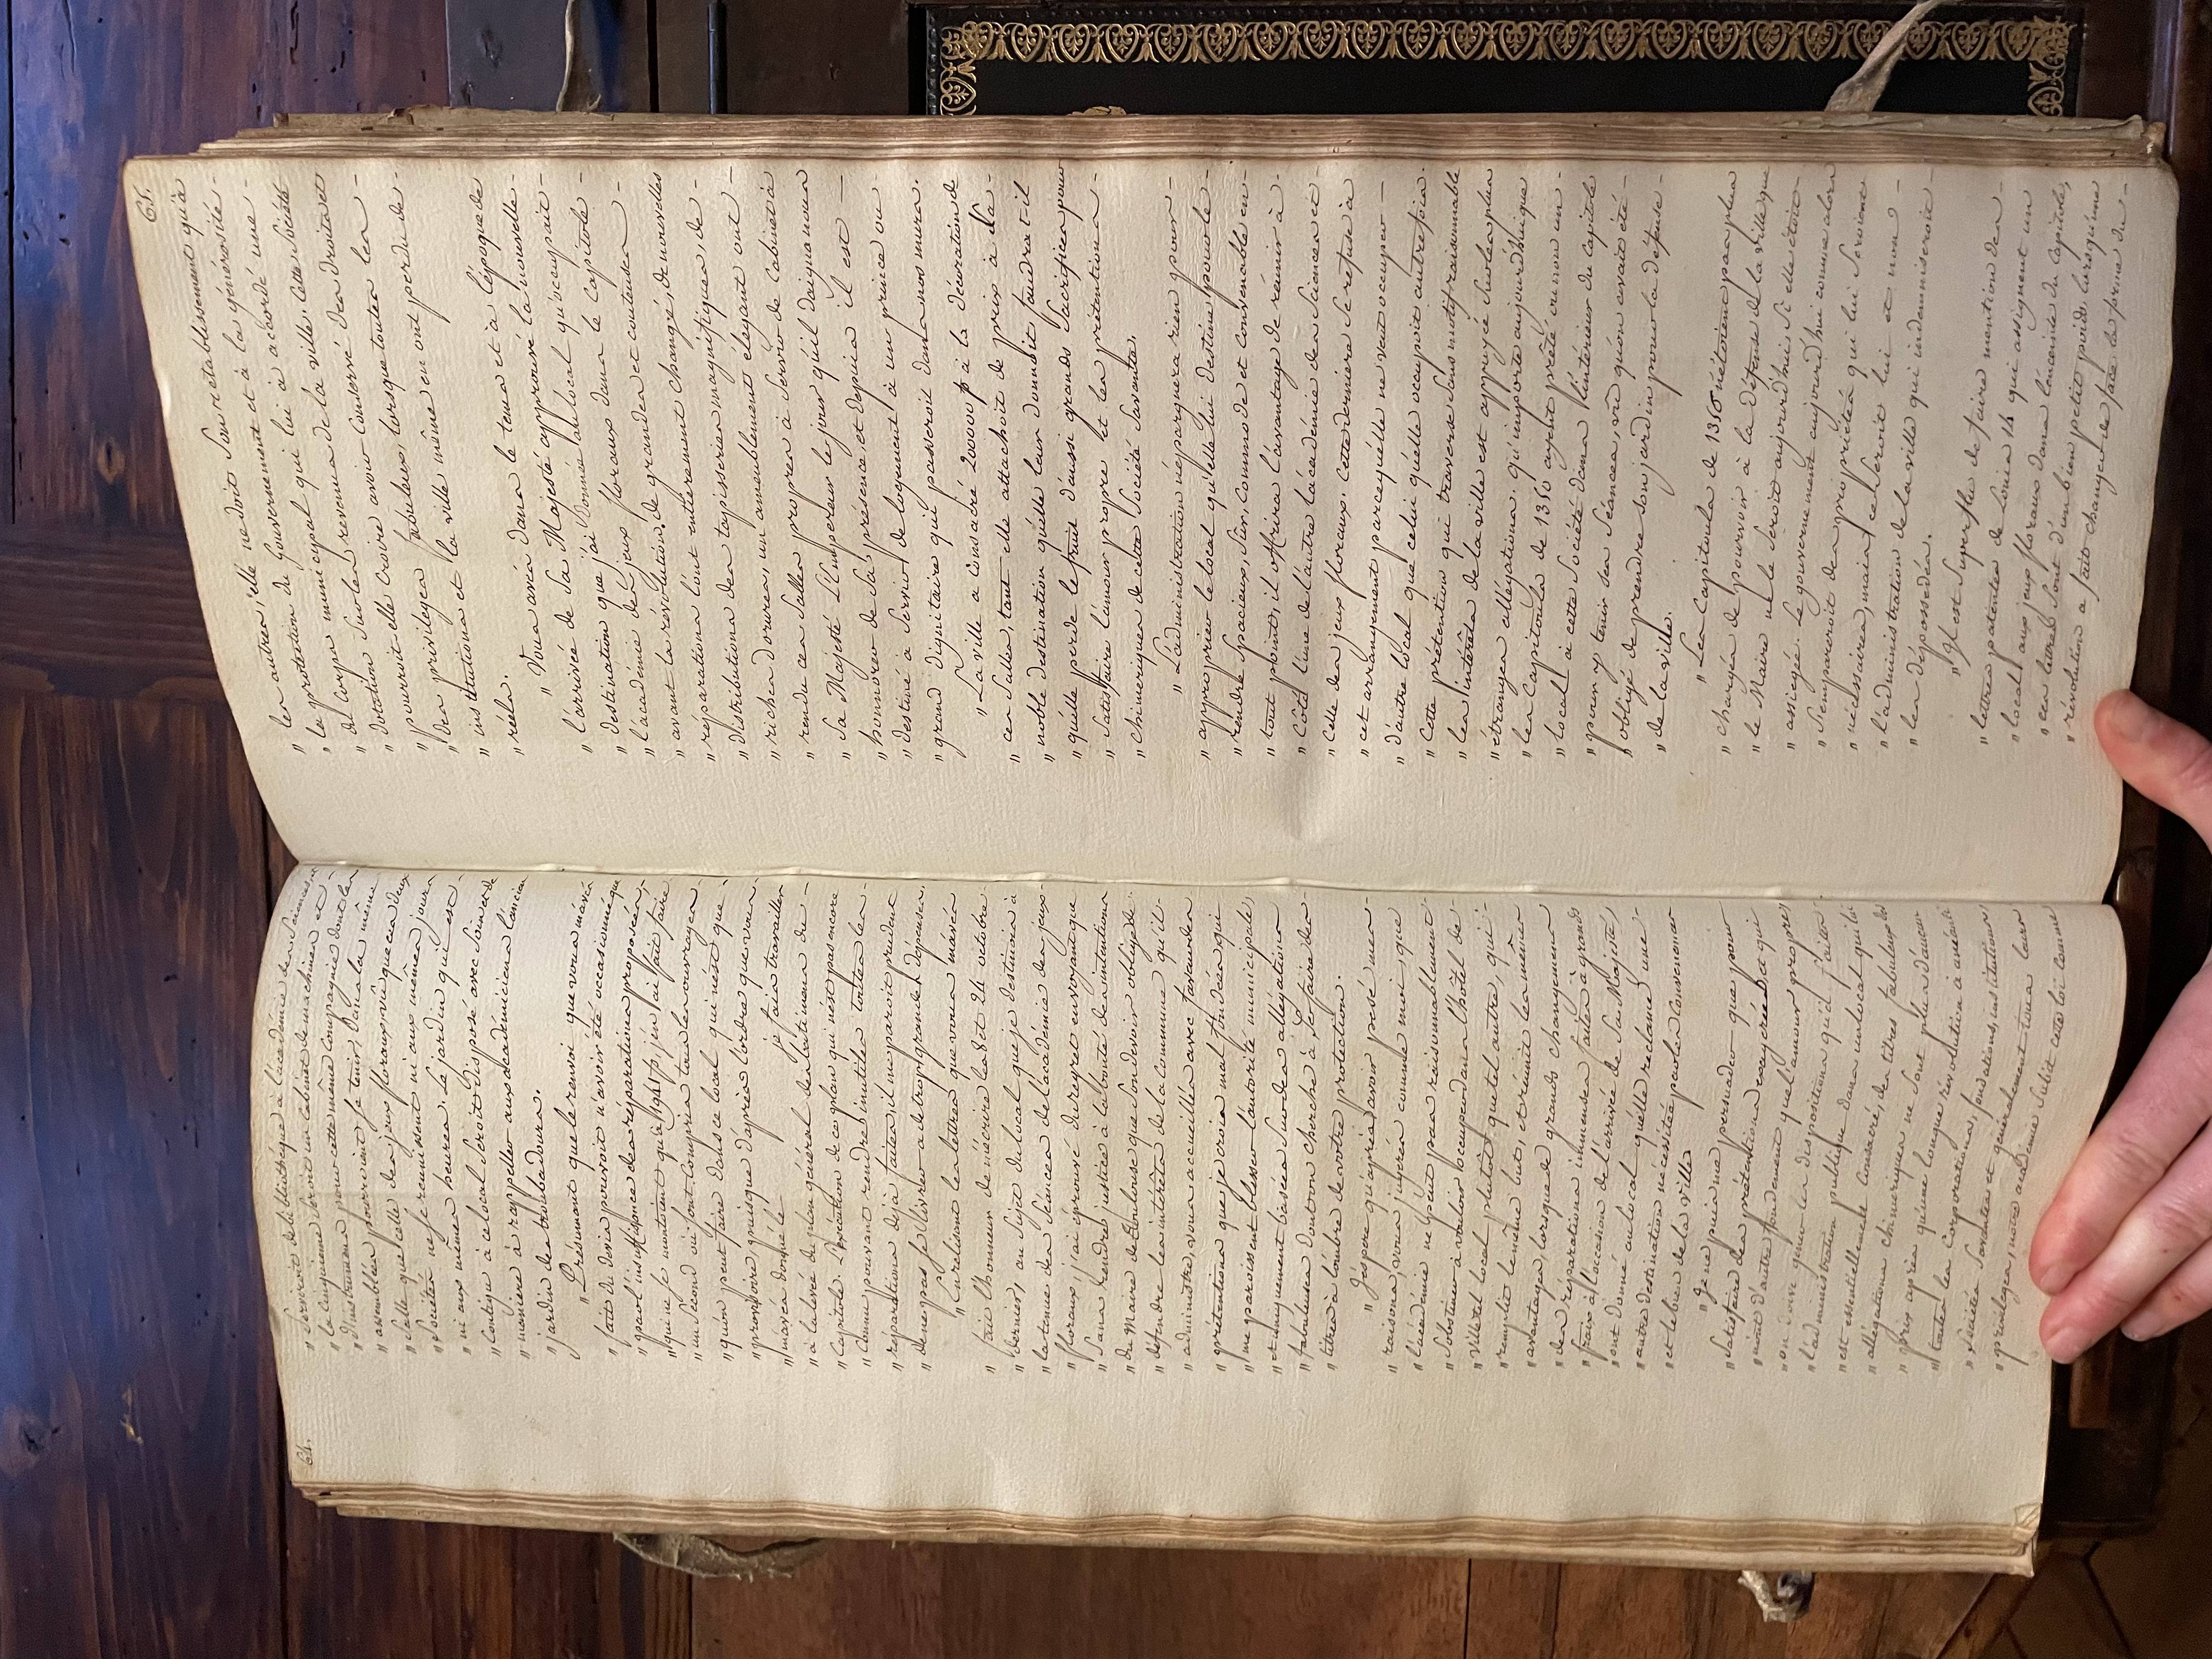 64.
„ serviroit de bibliothèque à l'académie des Sciences,
„ la cinquième seroit un cabinet de machines et
„ d'instrumens pour cette même Compagnie dont les
„ assemblées pourroient se tenir, dans la même
„ Salle que celle des jeux floraux, vû que ces deux
„ Sociétés ne se réunissent ni aux mêmes jours
„ ni aux mêmes heures. Le jardin qui est
„ contigu à ce local seroit disposé avec soin et de
„ manière à rappeller aux académiciens l'ancien
„ jardin des troubadours.
„ Présumant que le renvoi que vous m'avés
„ fait du devis pouvoit n'avoir été occasionné que
„ par l'insuffisance des réparations proposées,
„ qui ne se montoient qu'à j'en ai fait faire
„ un Second où sont Compris tous les ouvrages
„ qu'on peut faire dans ce local qui n'est que
„ provisoire puisque d'après l'ordre que vous
„ m'avés donné le je fais travailler
„ à la levée du plan général des bâtimens du
„ Capitole. l'exécution de ce plan qui n'est pas encore
„ connu pouvant rendre inutiles toutes les
„ réparations déjà faites, il me paroit prudent
„ de ne pas se livrer à de trop grandes dépenses.
„ En relisant les lettres que vous m'avés
„ fait l'honneur de m'écrire les 8 et 24 octobre
„ dernier, au Sujet du local que je destinois à
„ la tenue des Séances de l'académie des jeux
„ floraux, j'ai éprouvé du regret en voyant que
„ Sans rendre justice à la bonté des intentions
„ du Maire de Toulouse que Son devoir oblige de
„ défendre les intérêts de la commune qu'il
„ administre, vous accueillés avec faveur des
„ prétentions que je crois mal fondées, qui
„ me paroissent blesser l'autorité municipale,
„ et uniquement basées Sur des allégations
„ fabuleuses dont on cherche à se faire des
„ titres à l'ombre de votre protection.
„ J'espère qu'après avoir pesé mes
„ raisons, vous jugerés comme moi, que
„ l'académie ne peut pas raisonnablement
„ s'obstiner à vouloir occuper dans l'hôtel de
„ Ville tel local plutôt que tel autre, qui
„ remplit le même but, et réunit les mêmes
„ avantages, lorsque de grands changemens
„ des réparations immenses faites à grands
„ frais à l'occasion de l'arrivée de Sa Majesté,
„ ont donné au local qu'elle réclame une
„ autre destination nécessitée par les convenances
„ et le bien de la ville.
„ Je ne puis me persuader que pour
„ Satisfaire des prétentions exagérées et qui
„ n'ont d'autre fondement que l'amour propre,
„ on doive gêner les dispositions qu'a faites
„ l'administration publique dans un local qui lui
„ est essentiellement consacré, des titres fabuleux des
„ allégations chimériques ne sont plus d'aucun
„ prix après qu'une longue révolution a anéanti
„ toutes les Corporations, fondations, institutions,
„ Sociétés Savantes et généralement tous leurs
„ privilèges, notre académie Subit cette loi comme
65.
„ les autres, elle ne doit Son rétablissement qu'à
„ la protection du Gouvernement et à la générosité
„ du Corps municipal qui lui a accordé une
„ dotation Sur les revenus de la ville. Cette Société
„ pourroit-elle croire avoir conservé des droits et
„ des privilèges fabuleux, lorsque toutes les
„ institutions et la ville même en ont perdu de
„ réels.
„ Vous avés dans le tems et à l'époque de
„ l'arrivée de Sa Majesté approuvé la nouvelle
„ destination que j'ai donnée au local qu'occupait
„ l'académie des jeux floraux dans le Capitole
„ avant la révolution. de grandes et couteuses
„ réparations l'ont entièrement changé, de nouvelles
„ distributions des tapisseries magnifiques, de
„ riches dorures, un ameublement élégant ont
„ rendu ces Salles propres à Servir de Cabinet à
„ Sa Majesté L'Empereur le jour qu'il daigna nous
„ honnorer de Sa présence, et depuis il est
„ destiné à Servir de logement à un prince ou
„ grand dignitaire qui passeroit dans nos murs.
„ La ville a consacré 200000 f à la décoration de
„ ces Salles, tant elle attachoit de prix à la
„ noble destination qu'elle leur donnoit faudra-t-il
„ qu'elle perde le fruit d'aussi grands Sacrifices pour
„ Satisfaire l'amour propre et les prétentions
„ chimériques de cette Société Savante.
„ L'administration n'épargnera rien pour
„ approprier le local qu'elle lui destine, pour le
„ rendre Spacieux, Sûr, Commode et convenable en
„ tout point, il offrira l'avantage de réunir à
„ côté l'une de l'autre l'académie des Sciences et
„ celle des jeux floraux. Cette dernière Se refuse à
„ cet arrangement parcequ'elle ne veut occuper
„ d'autre local que celui qu'elle occupoit autrefois.
„ Cette prétention qui traverse Sans motif raisonnable
„ les intérêts de la ville est appuyée Sur les plus
„ étranges allégations. qu'importe aujourd'hui que
„ les Capitouls de 1350 ayent prêté ou non un
„ local à cette Société dans l'intérieur du Capitole
„ pour y tenir ses Séances, vû qu'on avait été
„ obligé de prendre son jardin pour la défense
„ de la ville.
„ Les Capitouls de 1356 n'étoient pas plus
„ chargés de pourvoir à la défense de la ville que
„ le Maire ne le Seroit aujourd'hui Si elle étoit
„ assiégée. Le gouvernement aujourd'hui comme alors
„ S'empareroit des propriétés qui lui Seroient
„ nécessaires, mais ce Seroit lui et non
„ l'administration de la ville qui indemniseroit
„ les dépossédés.
„ Il est Superflu de faire mention des
„ lettres patentes de Louis 14 qui assignent un
„ local aux jeux floraux dans l'enceinte du Capitole,
„ ces lettres Sont d'un bien petit poids lorsqu'une
„ révolution a fait changer de face la forme du